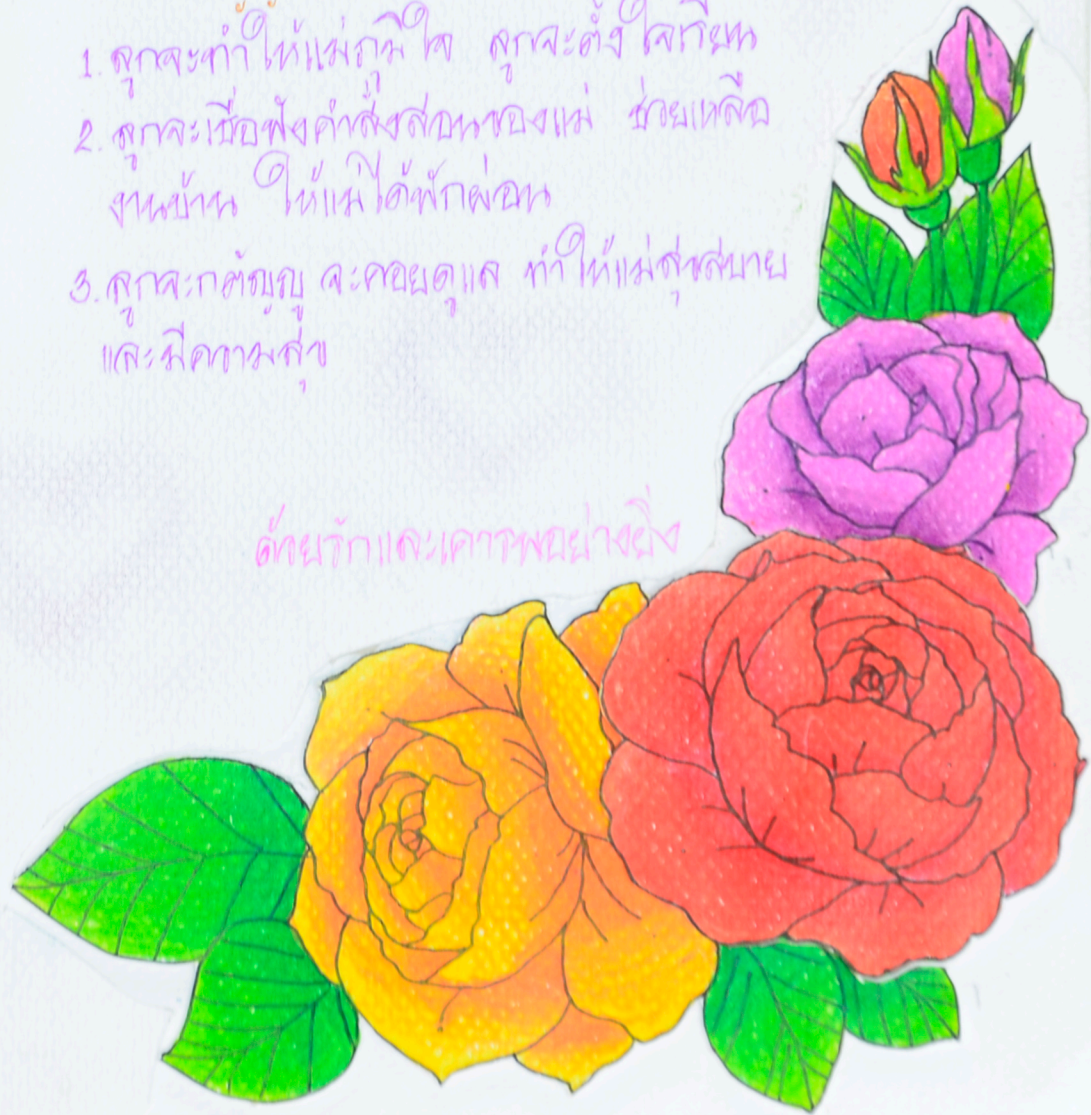 1. ลูกจะทำให้แม่ภูมิใจ ลูกจะตั้งใจเรียน
2. ลูกจะเชื่อฟังคำสั่งสอนของแม่ ช่วยเหลือ
งานบ้าน ให้แม่ได้พักผ่อน
3. ลูกจะกตัญญู จะคอยดูแล ทำให้แม่สุขสบาย
และมีความสุข
ด้วยรักและเคารพอย่างยิ่ง